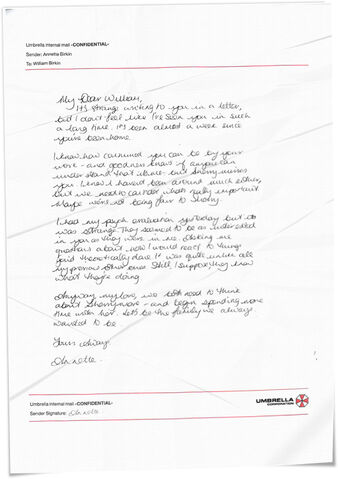 Umbrella internal mail -CONFIDENTIAL-
Sender: Annette Birkin
To: William Birkin
My Dear William,
It's strange writing to you in a letter,
but I don't feel like I've seen you in such
a long time. It's been almost a week since
you've been home.
I know how consumed you can be by your
work - and goodness knows if anyone can
understand that it's me, but Sherry misses
you. I know I haven't been around much either,
but we need to consider what's really important.
Maybe we're not being fair to Sherry.
I had my psych evaluation yesterday but it
was strange. They seemed to be as interested
in you as they were in me. Asking me
questions about how I would react to things
you'd theoretically done. It was quite unlike all
my previous other ones. Still, I suppose they know
what they're doing.
Anyway my love, we both need to think
about Sherry more - and begin spending more
time with her. Let's be the family we always
wanted to be.
Yours always,
Annette.
Umbrella internal mail -CONFIDENTIAL-
Sender Signature: Annette
UMBRELLA
CORPORATION